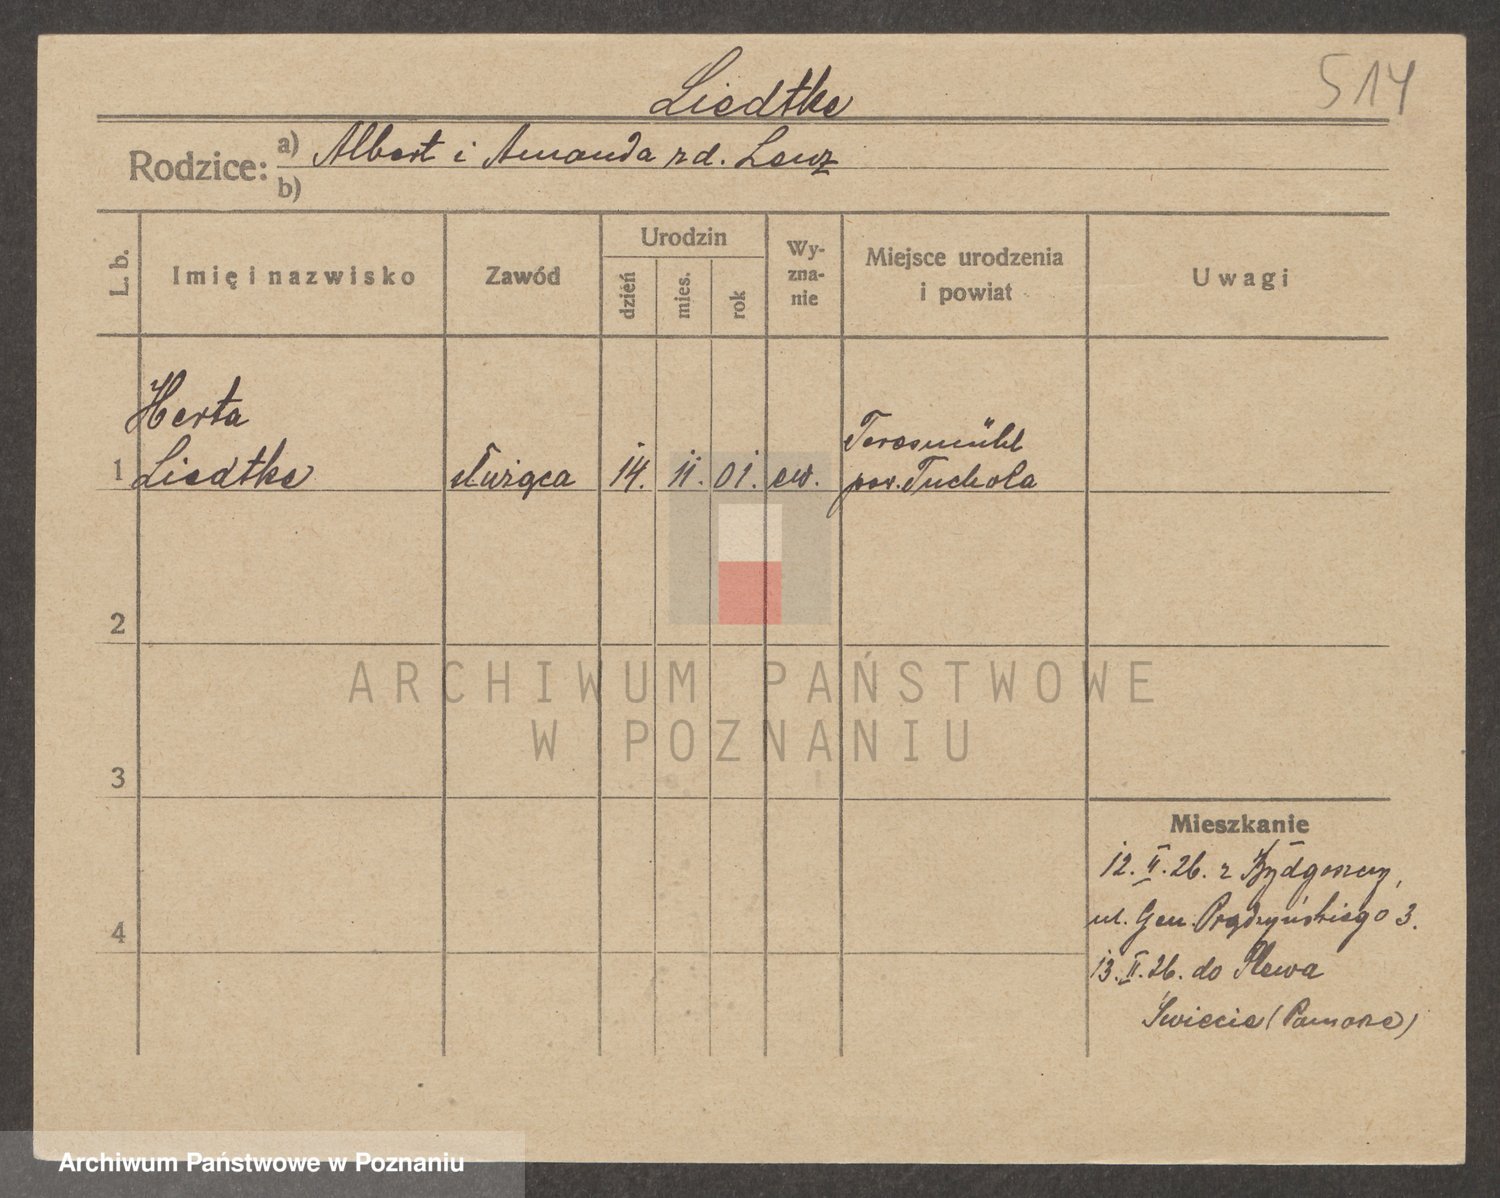 Liedtke
514
Rodzice: a) Albert i Amanda zd. Lenz
b)
L. b.
Imię i nazwisko
Zawód
Urodzin
dzień
mies.
rok
Wy-
zna-
nie
Miejsce urodzenia
i powiat
Uwagi
Herta
1 Liedtke
służąca
14. 11. 01. ew.
pow. Tuchola
2
ARCHIWUM PAŃSTWOWE
W POZNANIU
3
Mieszkanie
12. II. 26. z Bydgoszczy,
ul. Gen. Prądzyńskiego 3.
4
13. II. 26. do Plewa
Swiecie (Pomorze)
Archiwum Państwowe w Poznaniu